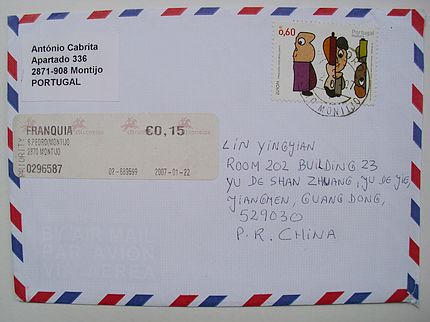 António Cabrita
Apartado 336
2871-908 Montijo
PORTUGAL
€0,60
Portugal
MONTIJO
FRANQUIA
€0,15
S.PEDRO/MONTIJO
2870 MONTIJO
PRIORITY
0296587
2007-01-22
LIN YINGYIAN
ROOM 202 BUILDING 23
YU DE SHAN ZHUANG, YU DE YIE,
JIANGMEN, GUANG DONG,
529030
P.R. CHINA
PAR AVION